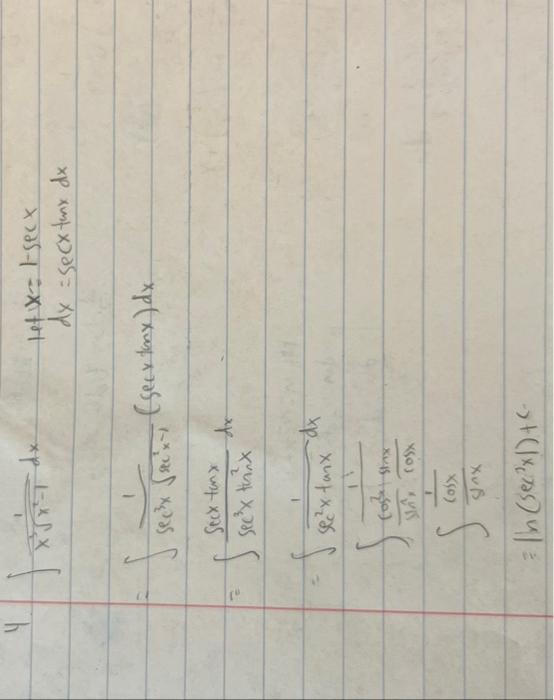 4. ∫ 1/(x³√(x²-1)) dx let x = 1·sec x
dx = sec x tan x dx
= ∫ 1/(sec³x √(sec²x-1)) (sec x tan x) dx
= ∫ (sec x tan x)/(sec³x tan²x) dx
= ∫ 1/(sec²x tan x) dx
∫ 1/((cos²x/sin²x) · (sin x/cos x))
∫ 1/(cos x/sin x)
= ln(sec²x1) + c